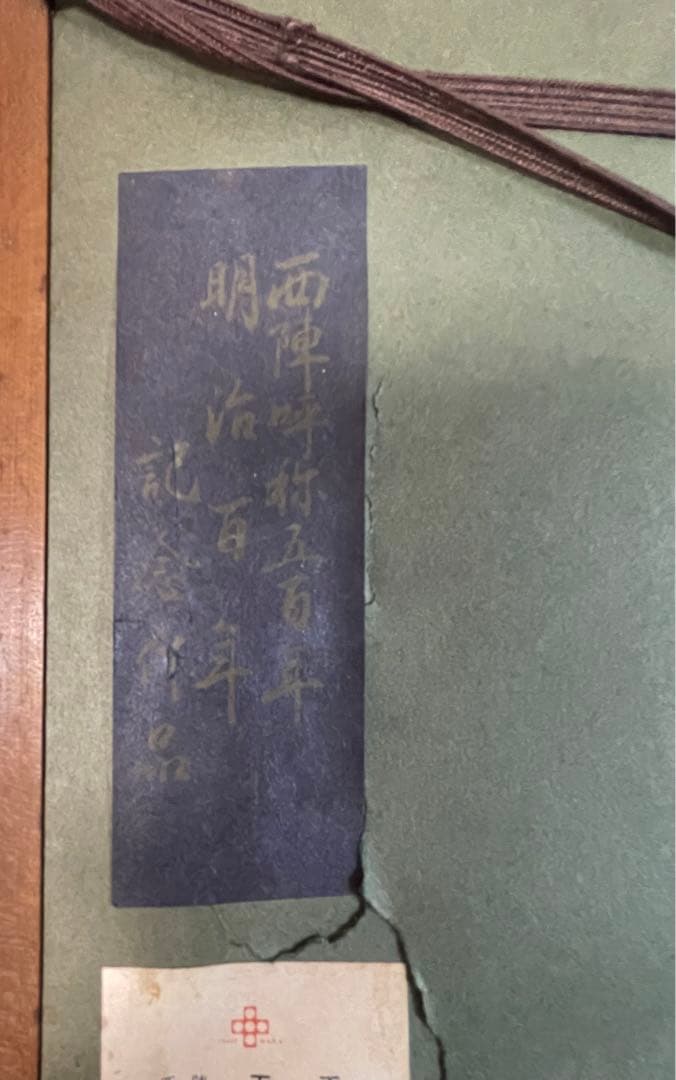 西陣呼称五百年
明治百年
記念作品